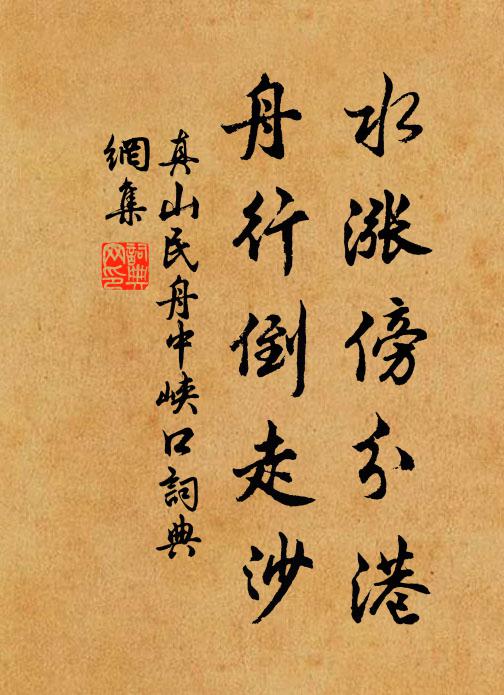 水漲傍分港
舟行倒走沙
真山民舟中峽口詞典
網集
詞典
网印